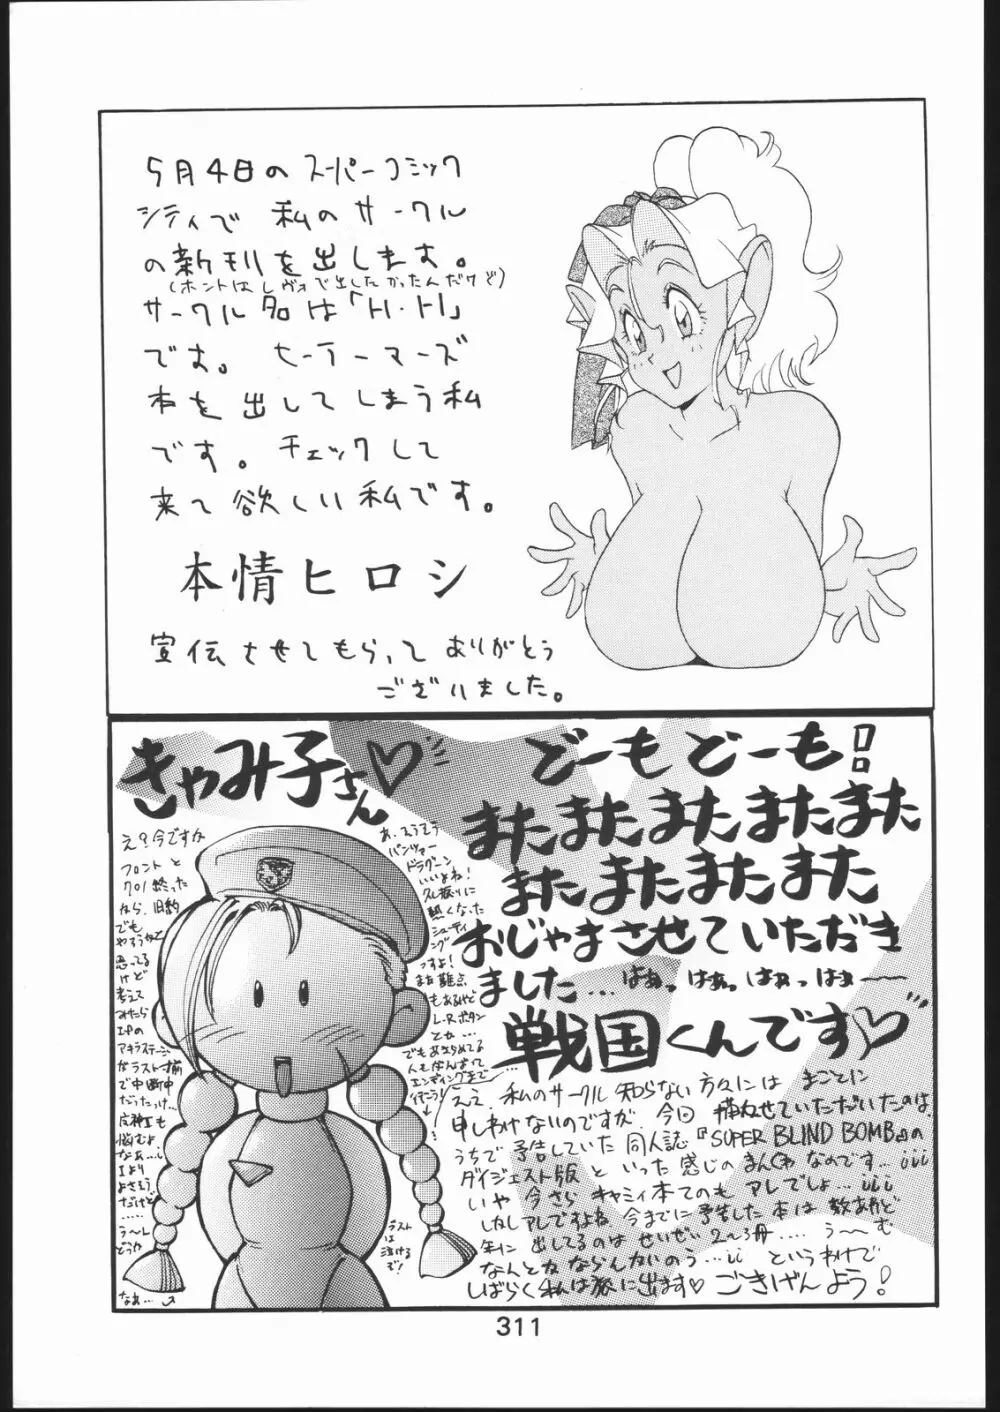 5月4日のスーパーコミック
シティで 私のサークル
の新刊を出します。
(ホントはレヴォで出したかったんだけど)
サークル名は「H・H」
です。ヒーテーマーズ
本を出してしまう私
です。チェックして
来て欲しい私です。
本情ヒロシ
宣伝させてもらって ありがとう
ございました。
きゃみ子さん♡
え?今ですか
フロントと
あ、そうそう
パンツァー
ドラグーン
いいよね!
久し振りに
熱くなった
シューティ
ング
っすよ!
また難点
もあるけど
L・Rボタン
とか…
でもあきらめてる
人もがんばって
エンディングまで
テスト
は
泣ける
で!
どーもどーも!!
またまたまたまたまた
またまたまたまた
おじゃまさせていただき
ました… はぁっはぁっはぁっはぁ〜〜
戦国くんです♡
ええ、私のサークル 知らない方々には まことに
申しわけないのですが、今回 描かせていただいたのは、
うちで予告していた 同人誌『SUPER BLIND BOMB』の
ダイジェスト版 と いった 感じの まんがなのです…iii
いや 今さら キャミィ本てのも アレでしょ…iii
しかしアレですよね 今までに予告した本は 数あれど
年に 出してるのは せいぜい 2〜3冊…. う〜む
なんとか ならんかいのう…ii というわけで
しばらく 私は旅に出ます♡ ごきげんよう!
311